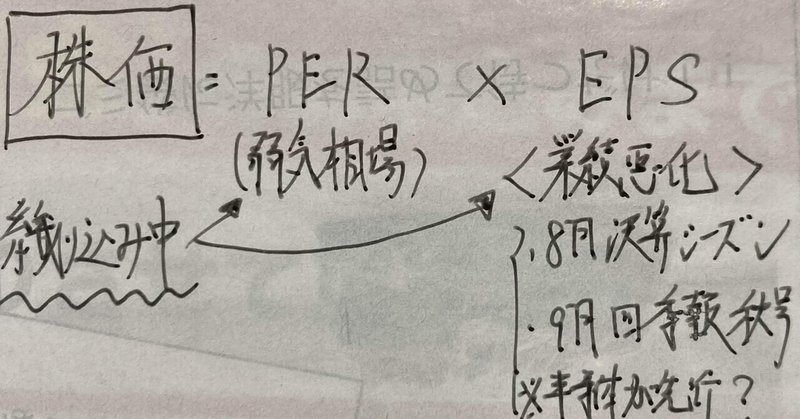 株価 = PER × EPS
(弱気相場) <業績悪化>
織り込み中
・8月決算シーズン
・9月四季報秋号
※半導体が先行?